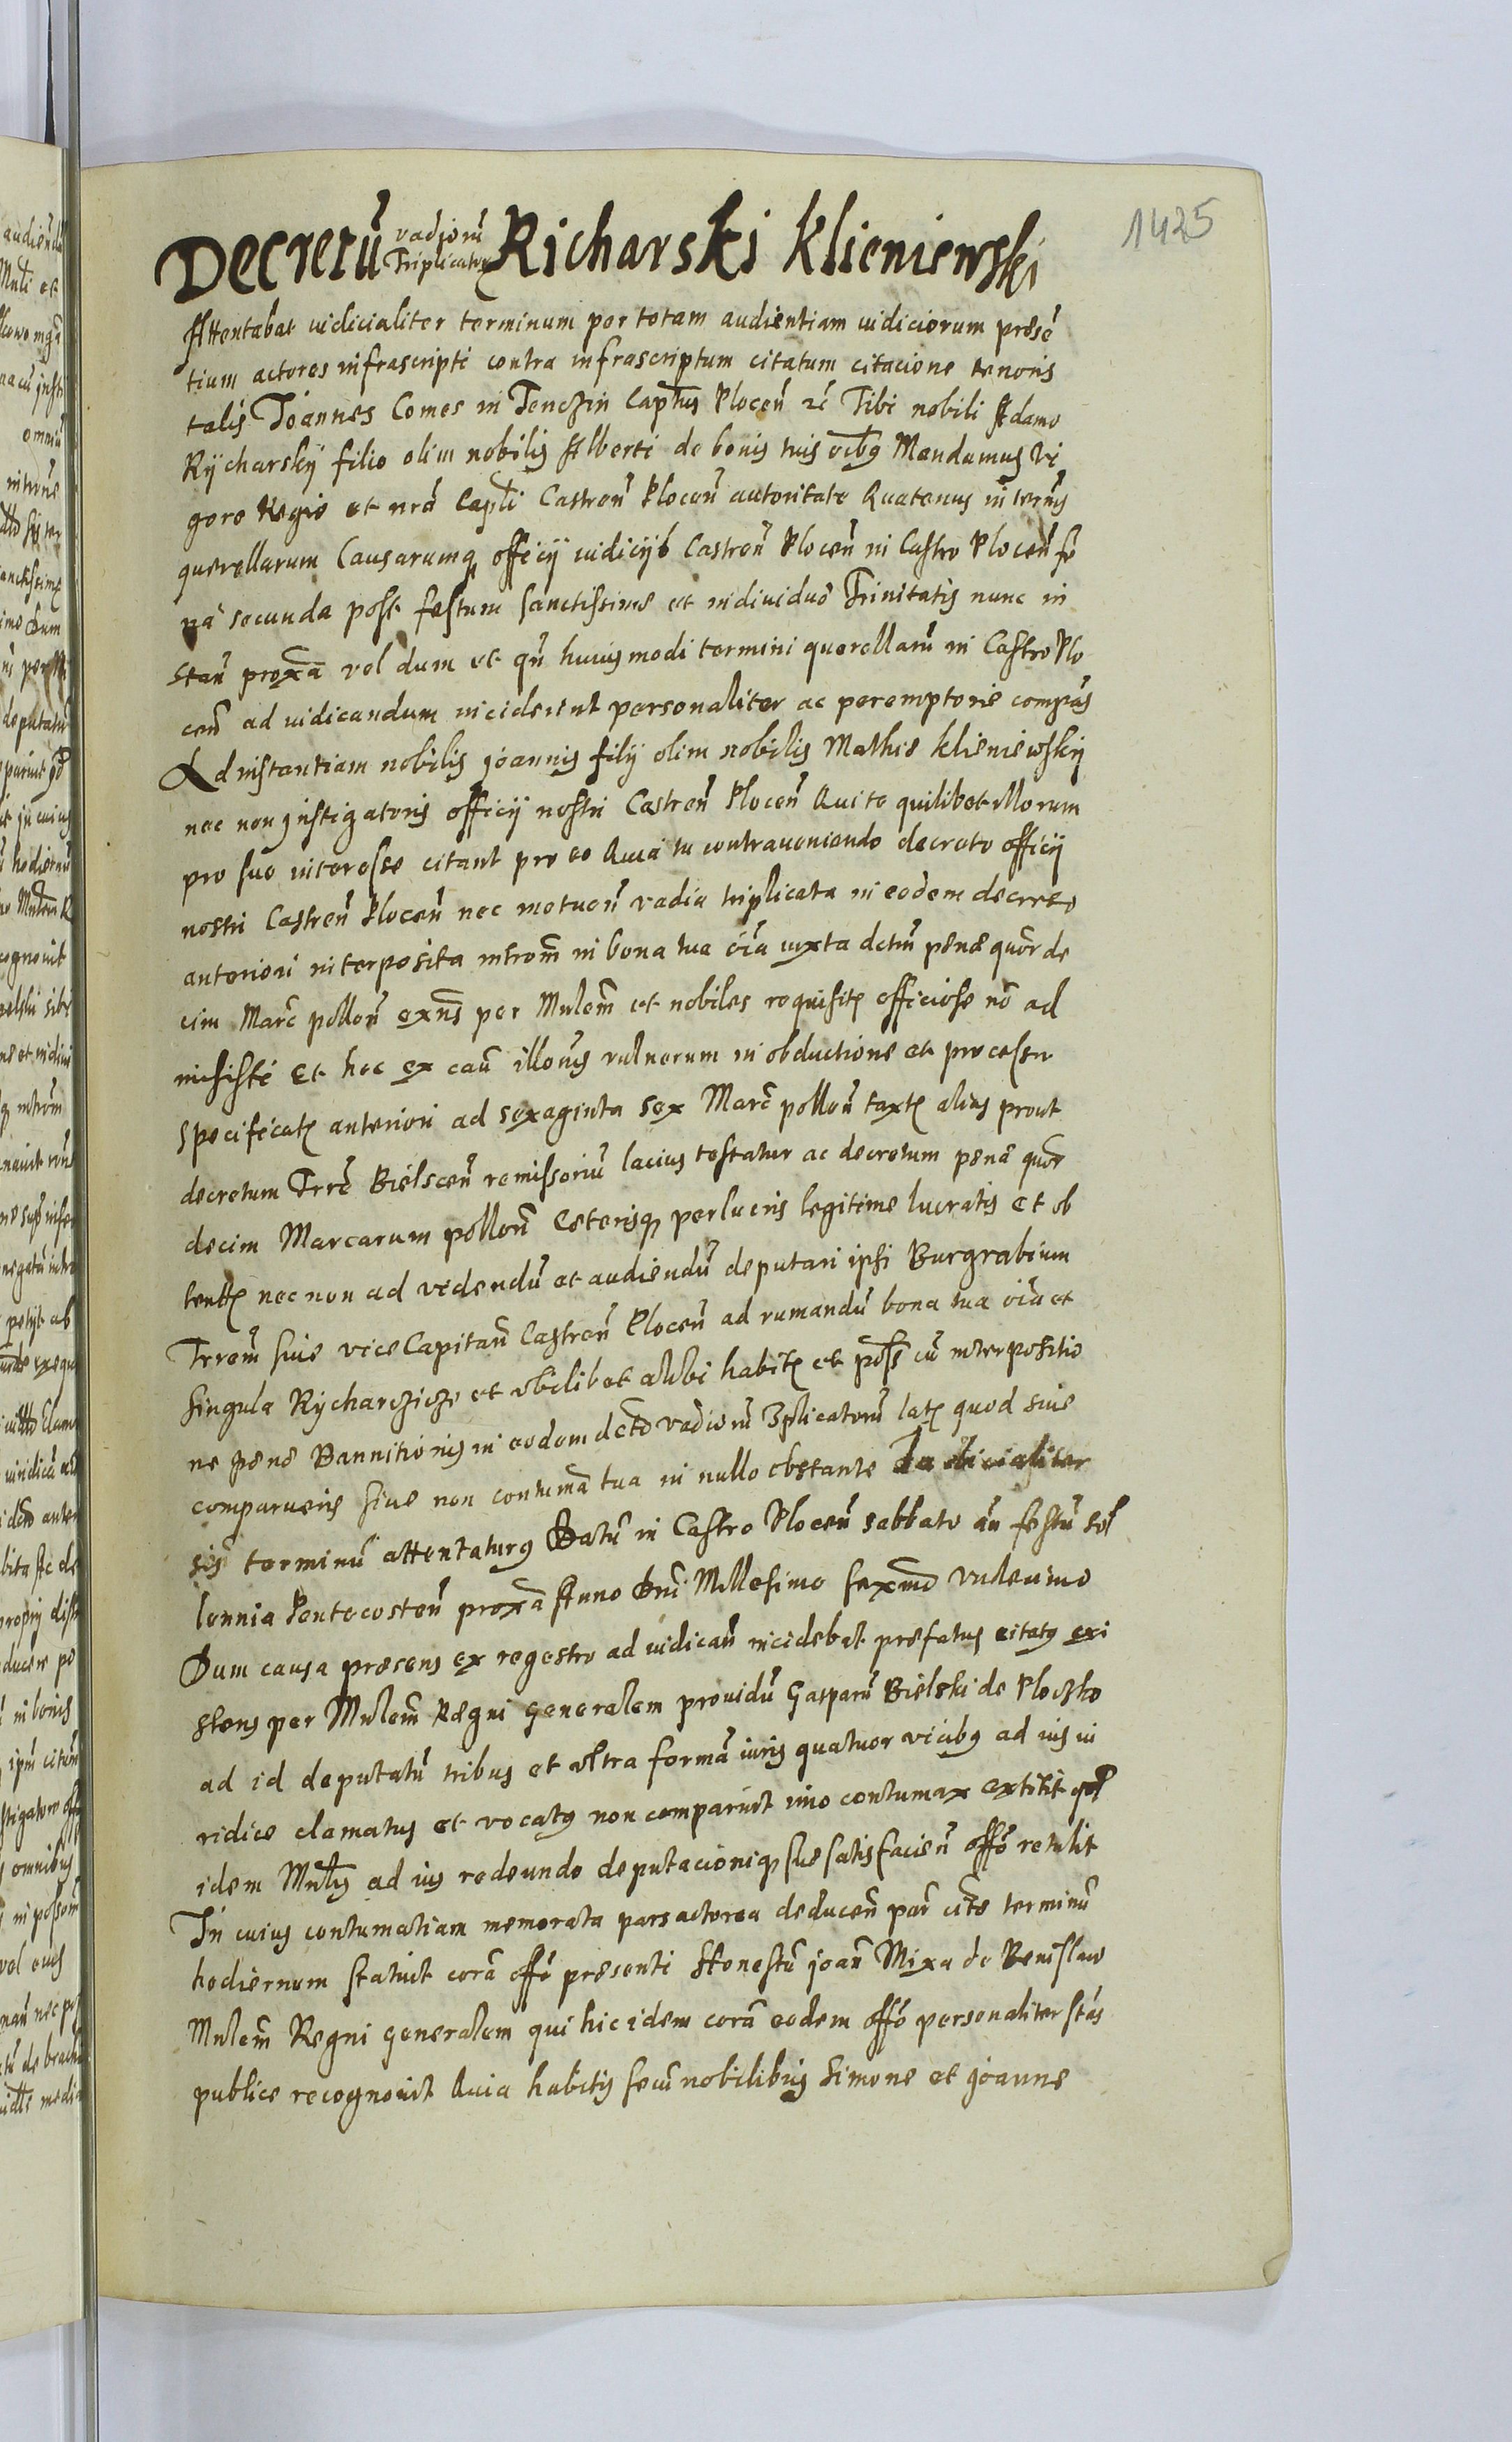 1425
Decretũ vadiorũ Triplicatorũ Richarski Klieniewski
Attentabat iudicialiter terminum per totam audientiam iudiciorum præsẽ
tium actores infrascripti contra infrascriptum citatum citacione tenoris
talis Joannes Comes in Tenczin Captus Plocen̄ rc̄ Tibi nobili Adamo
Rÿcharskÿ filio olim nobilis Alberti de bonis tuis oibꝫ Mandamus Vi
gore Regio et nrã Capli Castren̄ Plocen̄ autoritate Quatenus in termis
querellarum Causarumqꝫ officÿ iudicÿs Castren̄ Plocen̄ in Castro Plocen̄ fe
ria secunda post festum sanctissime et individue Trinitatis nunc in
stan̄ proxã vel dum et qñ huiusmodi termini querellarũ in Castro Plo
cen̄ ad iudicandum inciderint personaliter ac peremptorie compãs
Ad instantiam nobilis joannis filÿ olim nobilis Mathie Klieniewskÿ
nec non jnstigatoris officÿ nostri Castren̄ Plocen̄ Qui te quilibet illorum
pro suo interesse citant pro eo Quia tu contraueniendo decreto officÿ
nostri Castren̄ Plocen̄ nec metuen̄ vadia triplicata in eodem decreto
anteriori interposita introm̄ in bona tua oīa iuxta dctũ pene quor de
cim Marc̄ pollon̄ exn̄s per Mnlem̄ et nobiles requisitꝭ officiose nõ ad
misisti Et hoc ex cau̅ illorus vulnerum in obductione et processu
specificatꝭ anteriori ad sexaginta sex Marc̄ pollon̄ taxtꝭ alias prout
decretum Trrē Bielscen̄ remissoriũ lacius testatur ac decretum pene quor
decim Marcarum pollon̄ Ceterisqꝫ perlucris legitime lucratis Et ob
tentꝭ nec non ad videndũ et audiendũ deputari ipsi Burgrabium
Trrem̄ siue vice Capitan̄ Castren̄ Plocen̄ ad rumandũ bona tua oīa et
singula Rÿcharczicze et vbilibet alibi habitꝭ et poss̄ cũ interpositio
ne pene Bannitionis in eodem dcto vadiorũ 3plicatorũ latꝭ quod siue
comparueris siue non contumã tua in nullo obstante Iudicialiter
sis̄ terminũ attentaturꝫ Datũ in Castro Plocen̄ sabbato an̄ festũ sol
lennia Pentecosten̄ proxã Anno Dnī Millesimo sexmo vndecimo
Dum causa præsens ex regestro ad iudican̄ incidebat præfatus citatꝫ exi
stens per Mnlem̄ Regni Generalem prouidũ Gasparũ Bielski de Ploczko
ad id deputatũ tribus et vltra formã iuris quatuor vicibꝫ ad ius iu
ridice clamatus et vocatꝫ non comparuit imo contumax extitit qd̄
idem Mnlis ad ius redeundo deputacioniqꝫ sue satisfacien̄ offo retulit
In cuius contumatiam memorata pars actorea deducen̄ par cite terminũ
hodiernum statuit corã offo præsenti Honestũ joan̄ Mixa de Benislaw
Mnlem̄ Regni generalem qui hic idem corã eodem offo personaliter stãs
publice recognouit Quia habitis secũ nobilibus simone et joanne